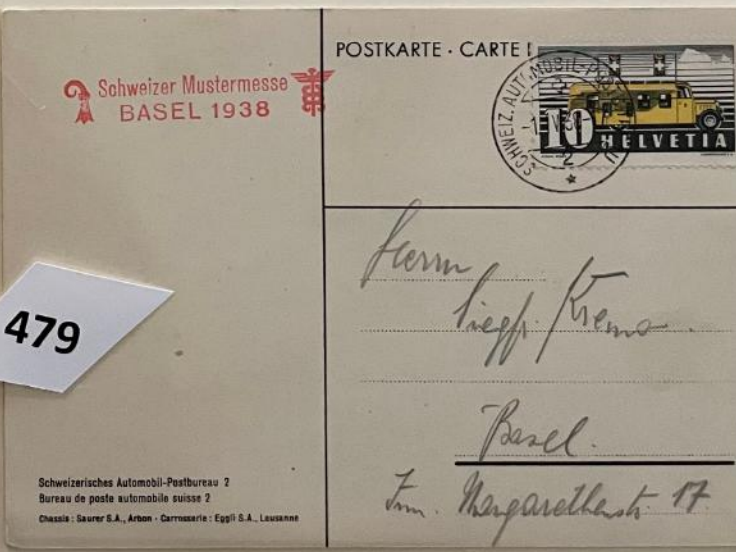 Schweizer Mustermesse
BASEL 1938
POSTKARTE · CARTE
SCHWEIZ. AUTOMOBIL-
2
10 HELVETIA
479
Herrn
Siegfr.
Basel.
Margarethenstr. 17.
Schweizerisches Automobil-Postbureau 2
Bureau de poste automobile suisse 2
Chassis : Saurer S.A., Arbon - Carrosserie : Eggli S.A., Lausanne